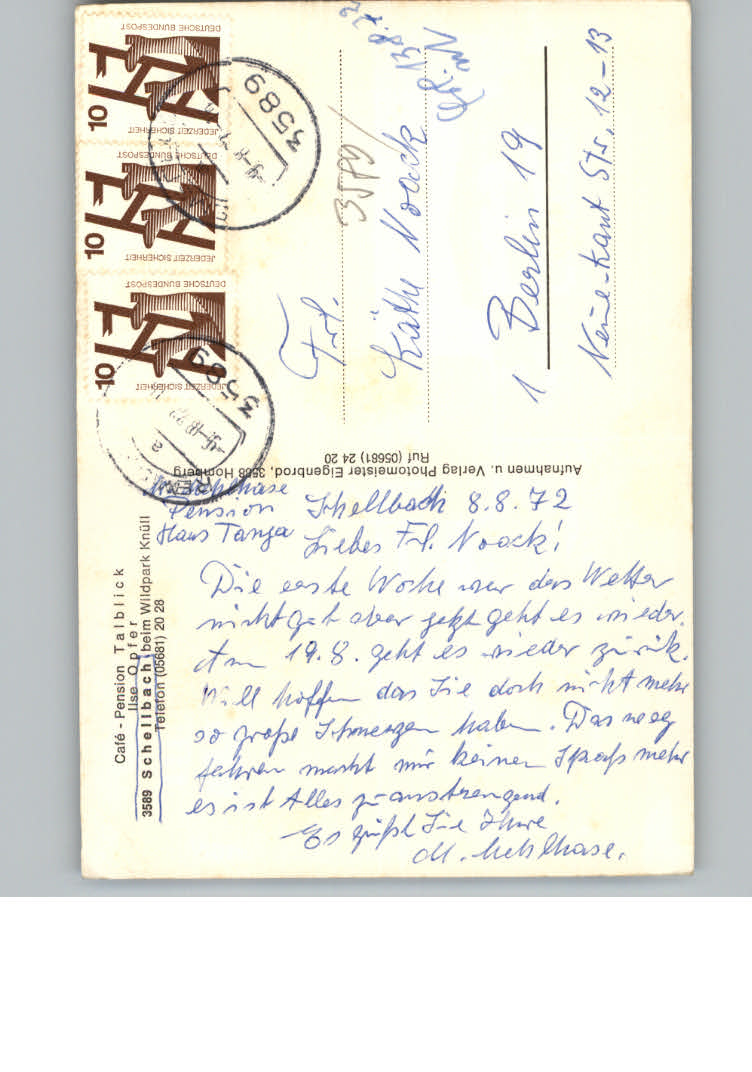 Café - Pension Talblick
Ilse Opfer
3589 Schellbach beim Wildpark Knüll
Telefon (05681) 20 28
M. Mehlhase
Pension
Haus Tanga
Schellbach 8.8.72
Liebes Frl. Noack!
Die erste Woche war das Wetter
nicht gut aber jetzt geht es wieder.
Am 19.8. geht es wieder zurück.
Will hoffen das Sie doch nicht mehr
so große Schmerzen haben. Das weg
fahren macht mir keinen Spaß mehr
es ist Alles zu anstrengend.
Es grüßt Sie Ihre
M. Mehlhase.
Aufnahmen u. Verlag Photomeister Eigenbrod, 3588 Homberg
Ruf (05681) 24 20
Frl.
Käthe Noack
1 Berlin 19
Neue-Kant Str. 12-13
3579/
13.8.72
DEUTSCHE BUNDESPOST
10
JEDERZEIT SICHERHEIT
DEUTSCHE BUNDESPOST
10
JEDERZEIT SICHERHEIT
DEUTSCHE BUNDESPOST
10
JEDERZEIT SICHERHEIT
3589
-9.-8.72
3589
-9.-8.72
a